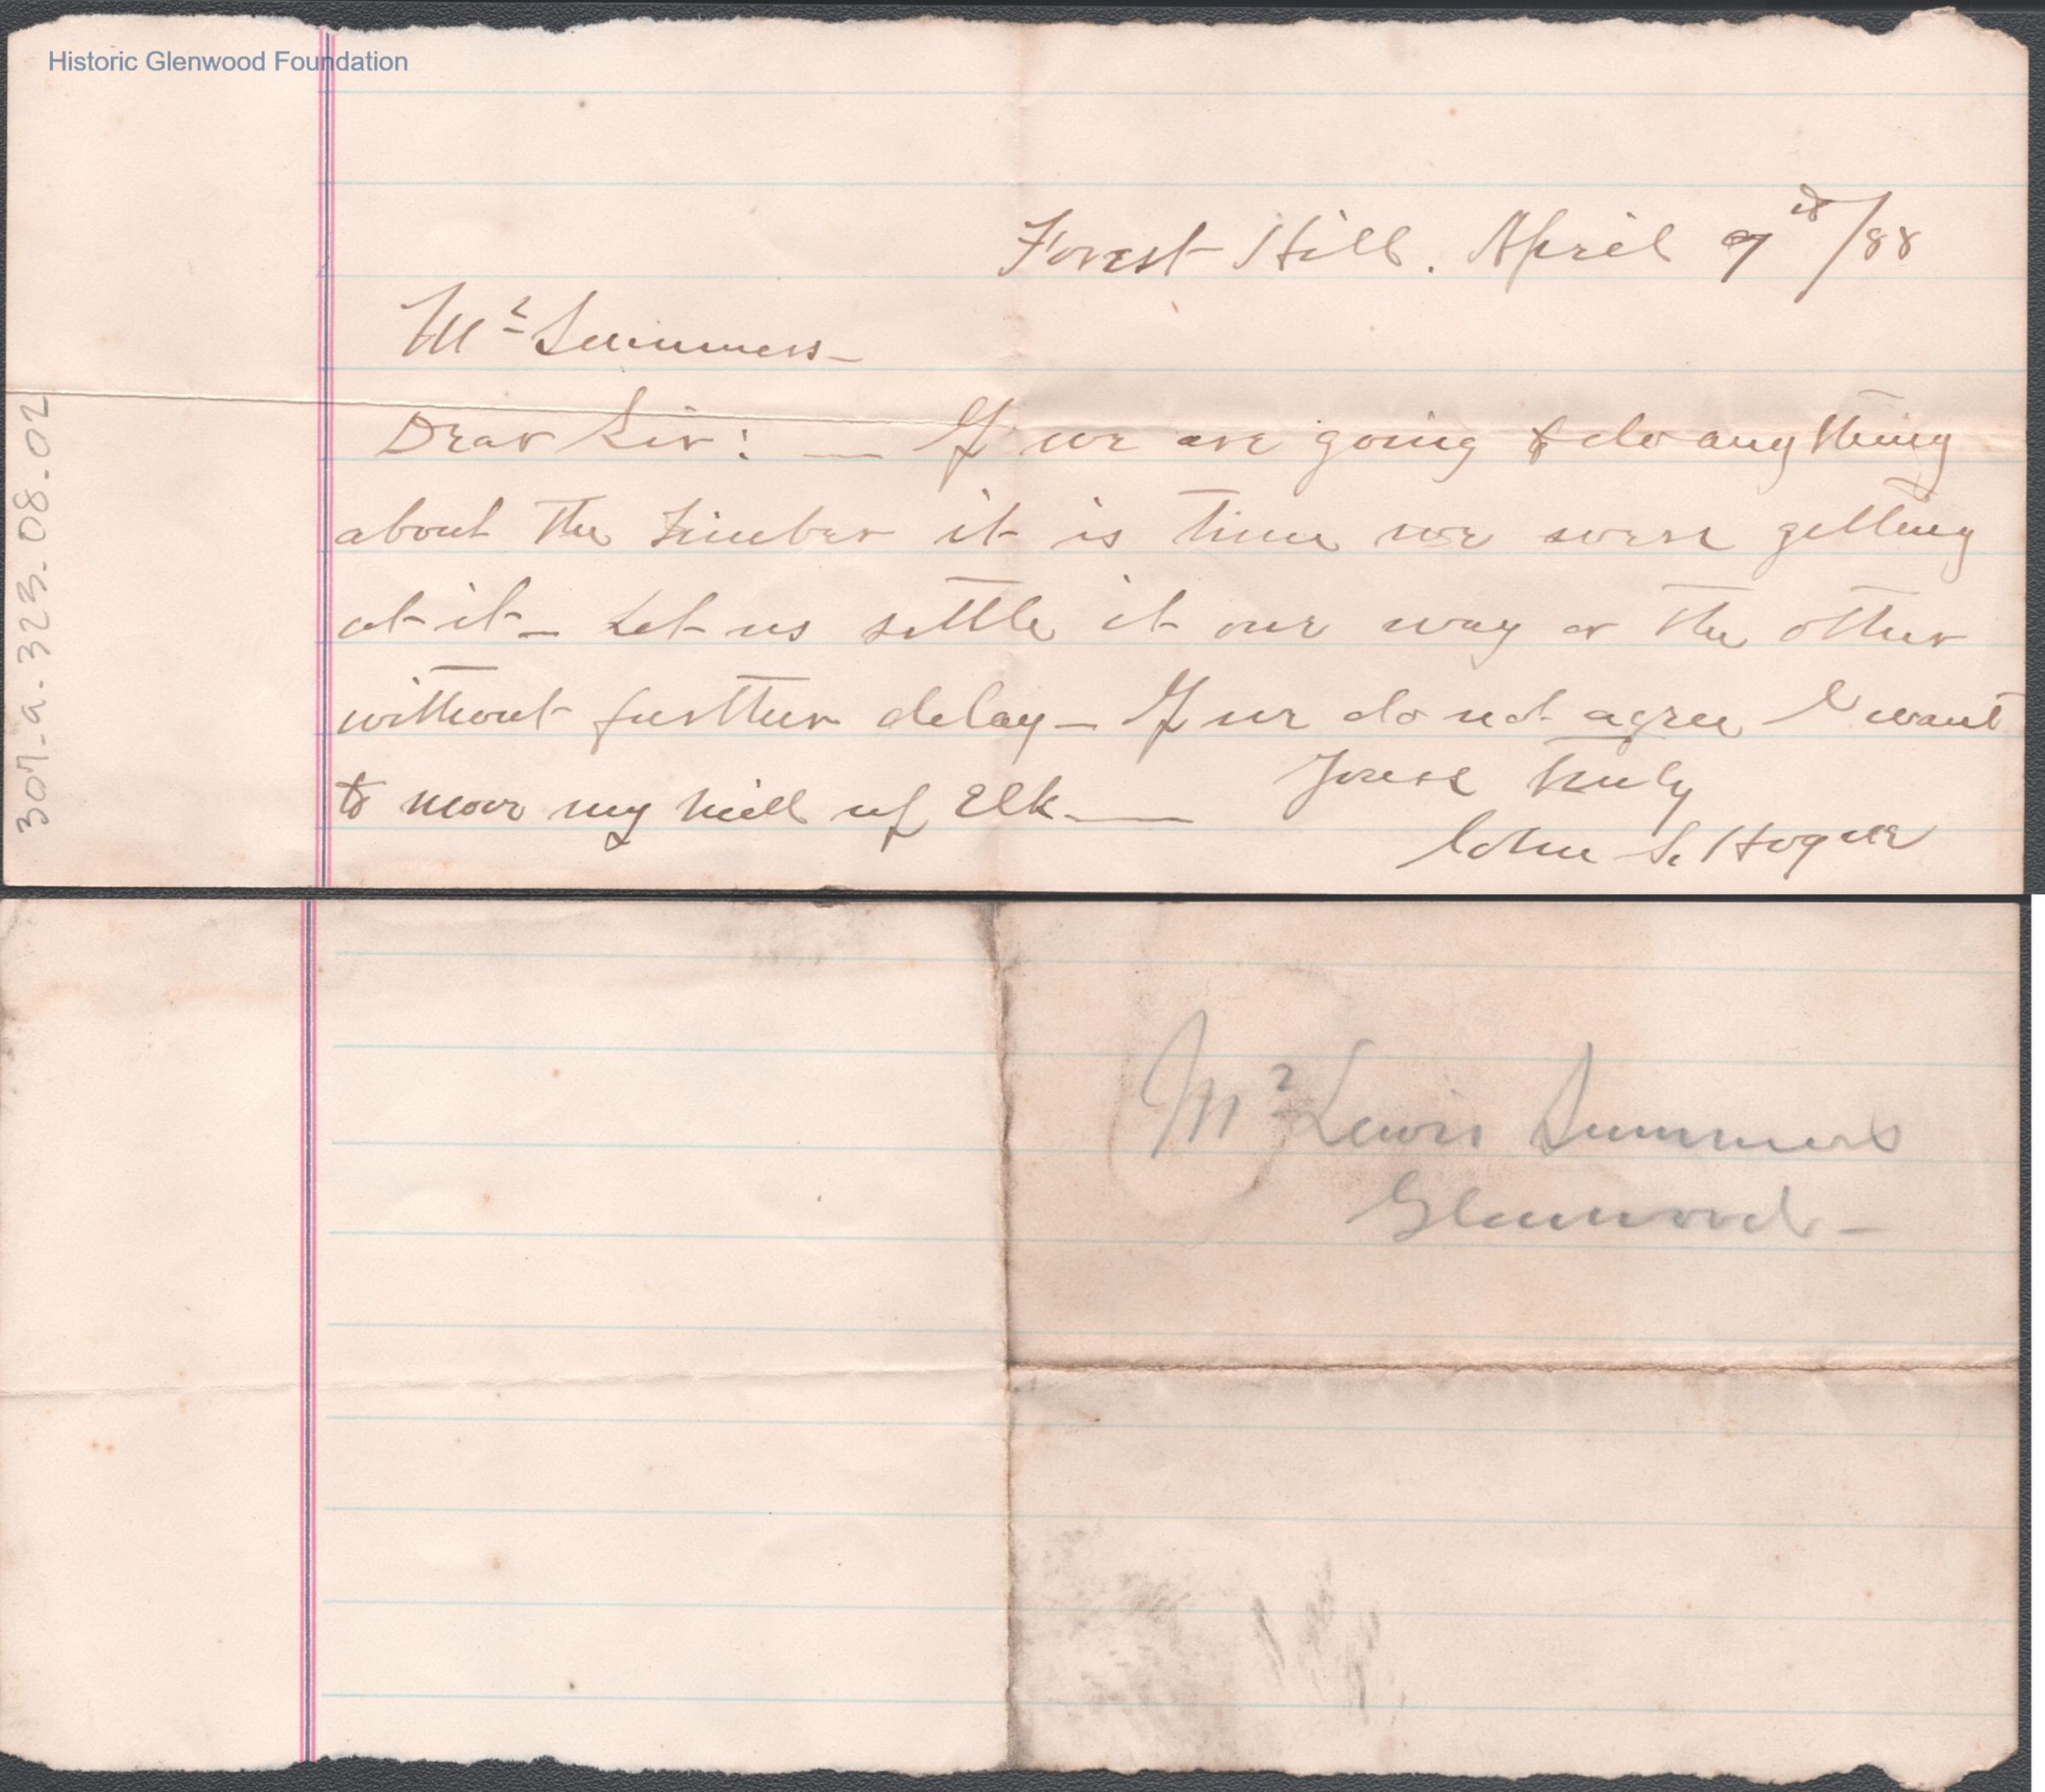 Historic Glenwood Foundation
Forest Hill. April 9th/88
Mr Summers
Dear Sir: — If we are going to do any thing
about the timber it is time we were getting
at it — Let us settle it one way or the other
without further delay — If we do not agree I want
to move my mill up Elk. —
Yours Truly
John S.
307-a-323.08.02
Mr Lewis Summers
Glenwood —